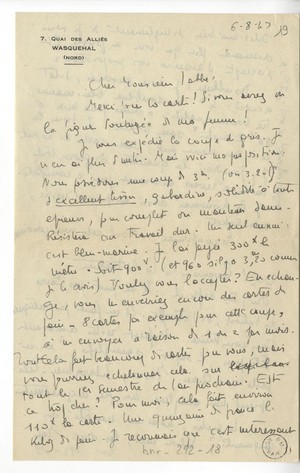 7. QUAI DES ALLIÉS
WASQUEHAL
(NORD)
6-8-43
19
Cher Monsieur l'abbé,
Merci pour la carte! Si vous aviez vu
la figure soulagée de ma femme!
Je vous expédie la coupe de gris. Je
n'en ai plus d'autre. Mais voici ma proposition:
Nous possédons une coupe de 3m (ou 3.20)
d'excellent tissu, gabardine, solide à toute
épreuve, pour complet ou manteau dame.
Résistera au travail dur. Un seul ennui:
c'est bleu-marine. Je l'ai payée 300 le
mètre. Soit 900. (et 960 s'il y a 3,20 comme
je le crois) Voulez-vous l'accepter? En échan-
ge, vous m'enverriez encore des cartes de
pain - 8 cartes par exemple pour cette coupe,
à m'envoyer à raison de 1 ou 2 par mois.
Tout cela fait beaucoup de cartes pour vous, mais
vous pourriez échelonner cela sur
tout le 1er semestre de l'an prochain. Est
ce trop cher? Pour moi, cela fait environ
110 la carte. Une quinzaine de francs le
kilog de pain. Je reconnais que c'est intéressant
292-18